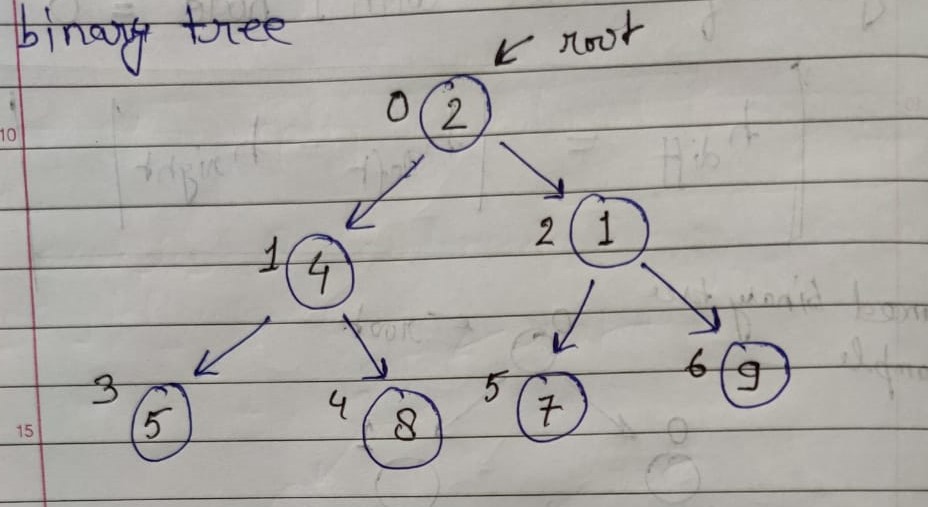 binary tree
root
0 2
1 4
2 1
3 5
4 8
5 7
6 9
10
15